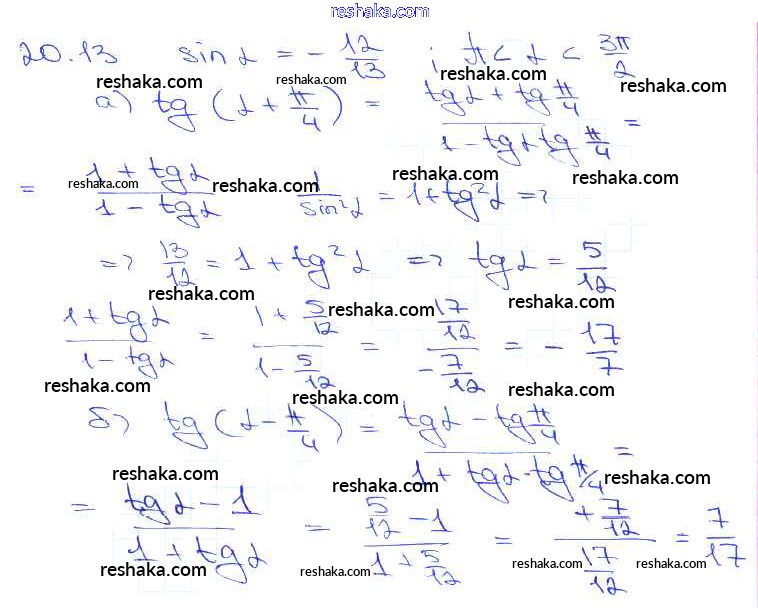 reshaka.com
20.13 sin α = - 12/13 ; π < α < 3π/2
reshaka.com reshaka.com reshaka.com
а) tg (α + π/4) = (tg α + tg π/4)/(1 - tg α tg π/4) =
reshaka.com reshaka.com reshaka.com
= (1 + tg α)/(1 - tg α) 1/sin²α = 1 + tg²α =>
reshaka.com reshaka.com
=> 13/12 = 1 + tg²α => tg α = 5/12
reshaka.com reshaka.com reshaka.com
(1 + tg α)/(1 - tg α) = (1 + 5/12)/(1 - 5/12) = (17/12)/(- 7/12) = - 17/7
reshaka.com reshaka.com reshaka.com
б) tg (α - π/4) = (tg α - tg π/4)/(1 + tg α · tg π/4) =
reshaka.com reshaka.com reshaka.com
= (tg α - 1)/(1 + tg α) = (5/12 - 1)/(1 + 5/12) = (+ 7/12)/(17/12) = 7/17
reshaka.com reshaka.com reshaka.com reshaka.com